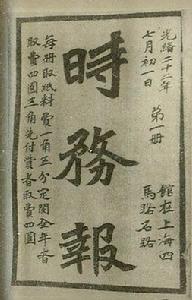 光緒二十二年
七月初一日
第一冊
館在上海四
馬路石路
時務報
每冊取紙料費一角五分定閱全年者
取費四圓五角先付貲者取費四圓